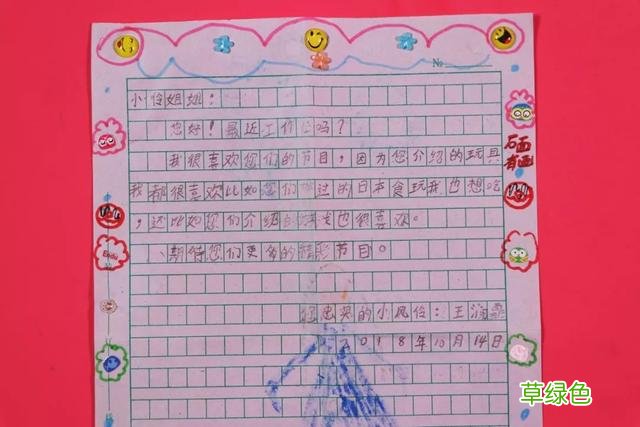 №
小伶姐姐：
您好！最近工作忙吗？
我很喜欢您们的节目，因为您介绍的玩具
我都很喜欢比如您们 过的日本食玩我也想吃
，还比如您们介绍 也很喜欢。
期待您们更多的精彩节目。
您忠实的小风伶：王
2018年10月14日
有画
草绿色